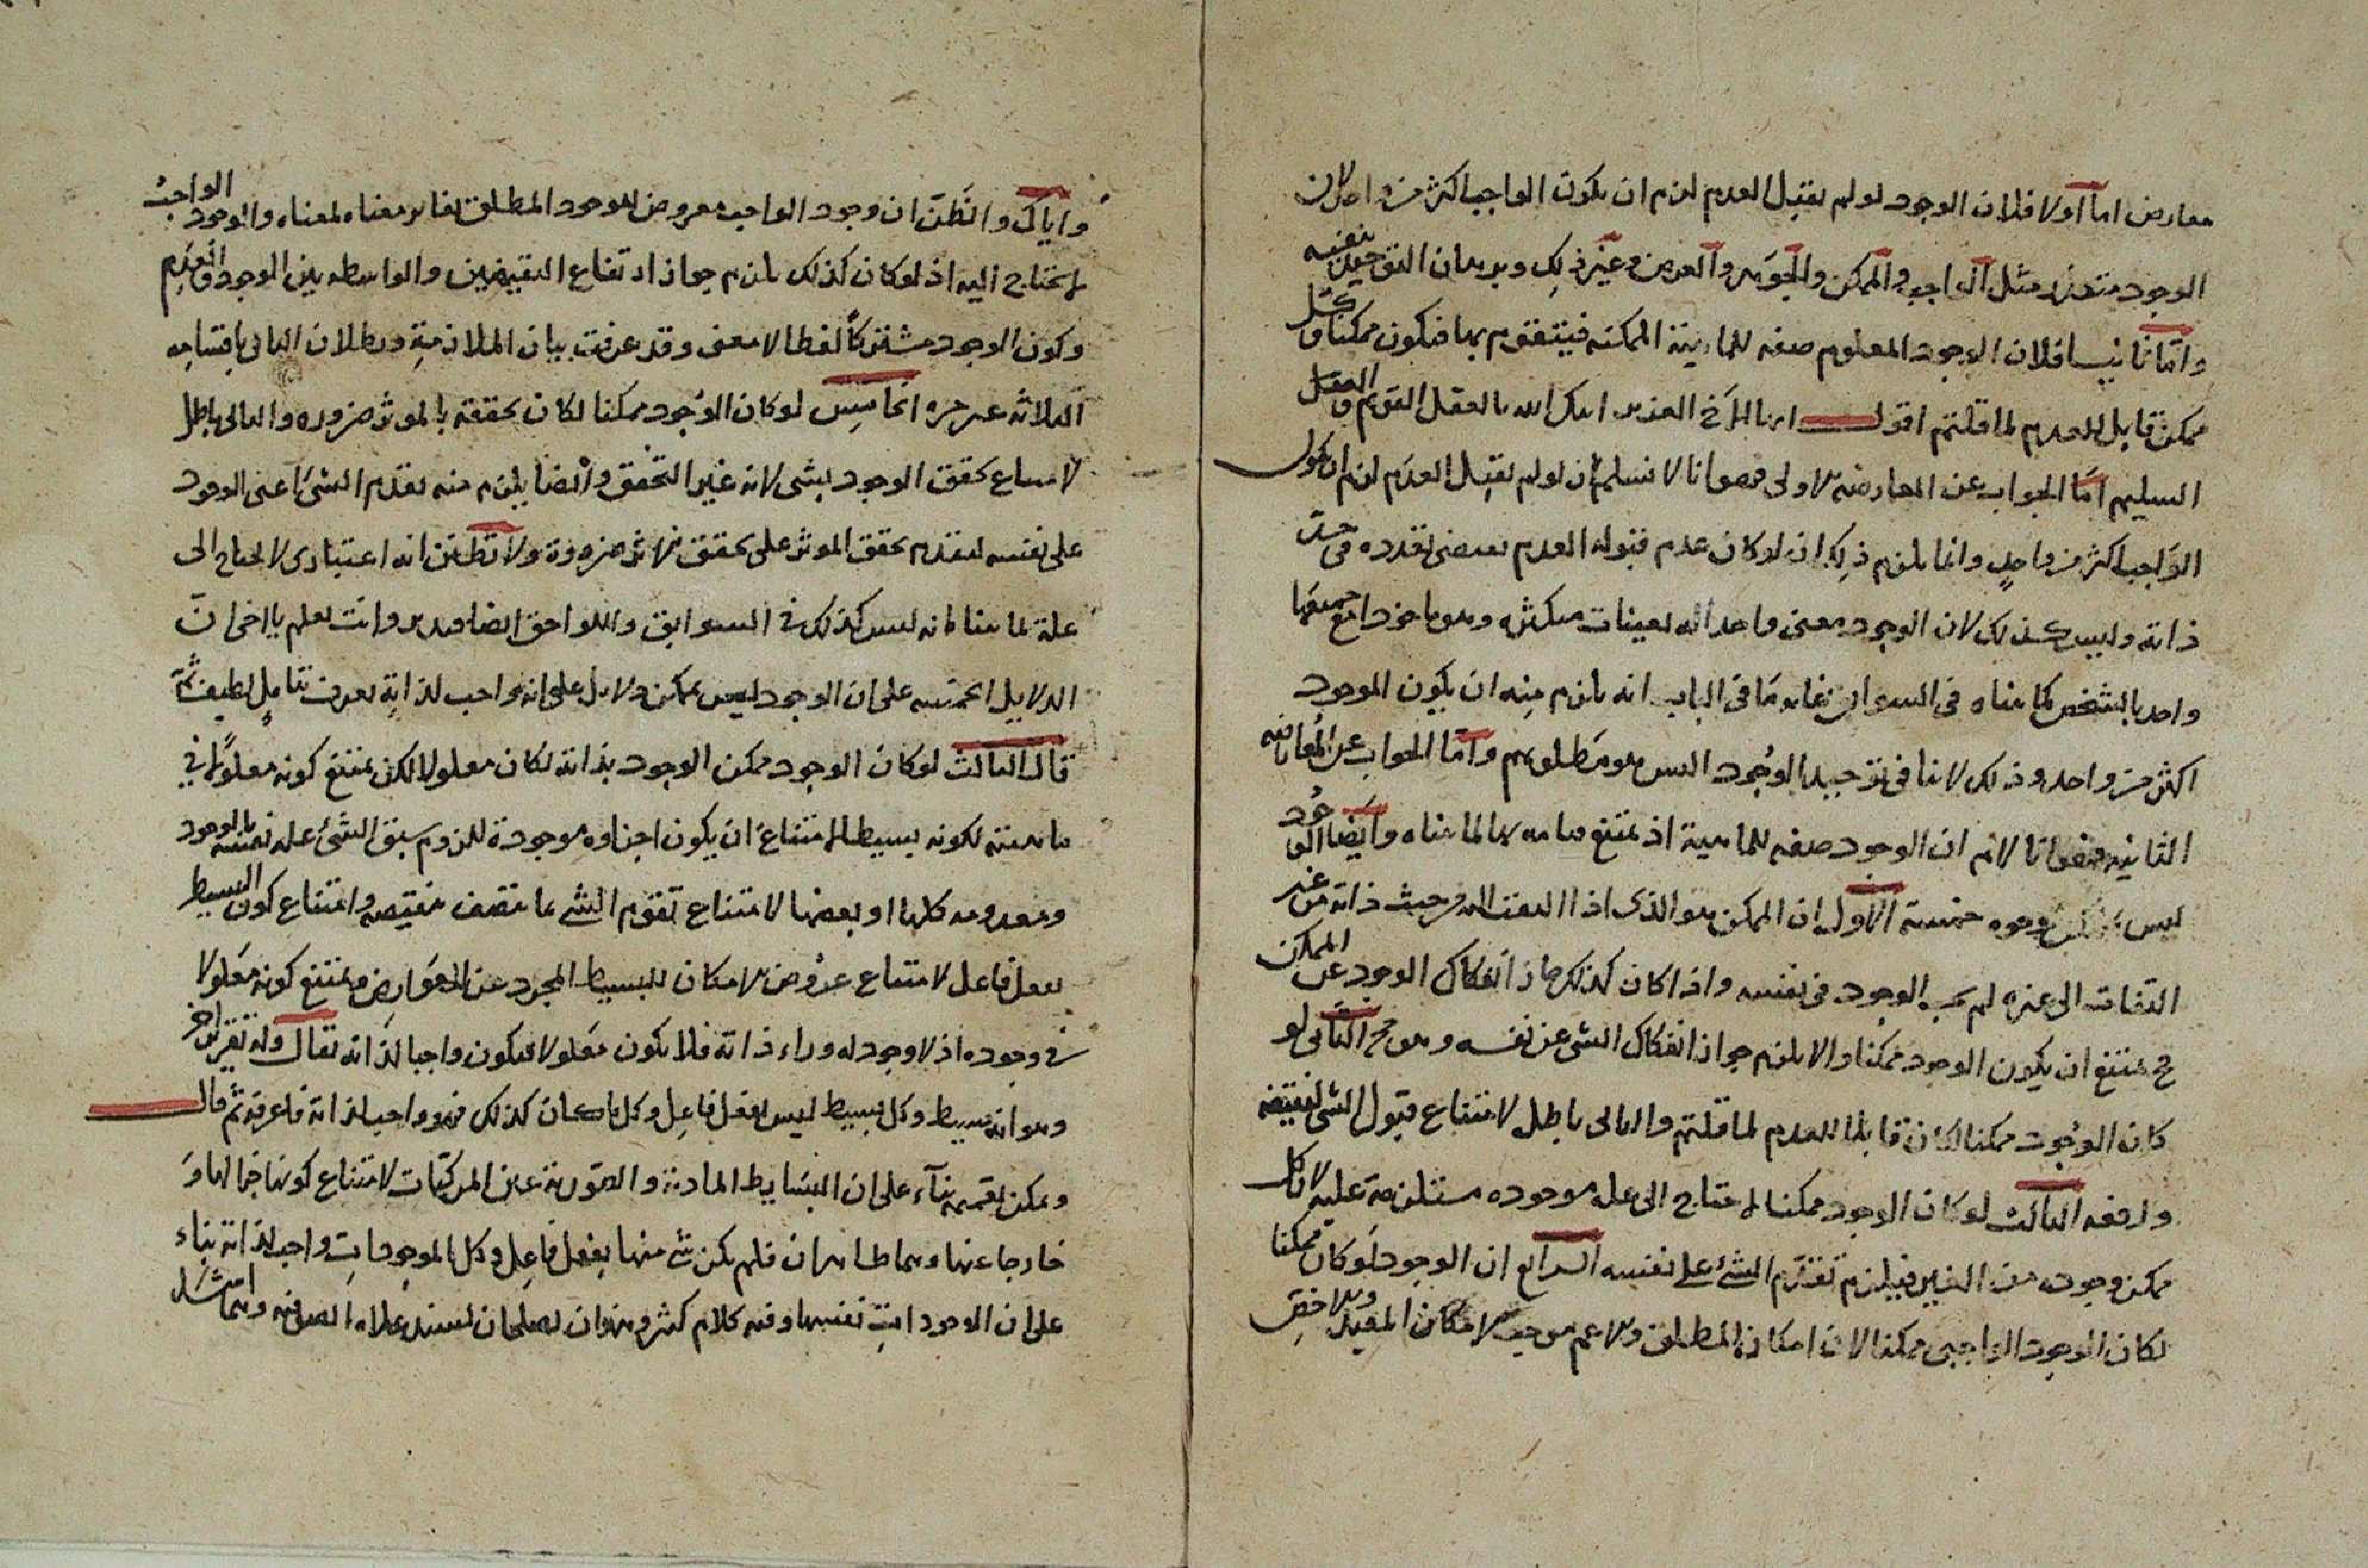 معارض اما اولا فلان الوجود لو لم يقبل العدم لزم ان يكون الواجب اكثر من واحد لان
الوجود متعدد مثل الواجب والممكن والجوهر والعرض وغير ذلك وبرهان التوحيد ينفيه
واما ثانيا فلان الوجود المعلوم صفة للماهية الممكنة فيتقوم بها فيكون ممكنا وكل
ممكن قابل للعدم لما قلتم اقول ايها الاخ العزيز بالعقل القويم والعقل
السليم اما الجواب عن المعارضة الاولى فهو انا لا نسلم ان لو لم يقبل العدم لزم ان يكون
الواجب اكثر من واحد وانما يلزم ذلك ان لو كان عدم قبوله العدم بعد تعدده في حد
ذاته وليس كذلك لان الوجود معنى واحد له تعينات متكثرة وهو ماخوذا مع جميعها
واحد بالشخص كما بيناه في السوابق غاية ما في الباب انه يلزم منه ان يكون الموجود
اكثر من واحد وذلك لا ينافي توحيد الوجود الذي هو مطلوبهم واما الجواب عن المعارضة
الثانية فهو انا لانم ان الوجود صفة للماهية اذ يمتنع قيامه بها لما بيناه وايضا الوجود
ليس بممكن لوجوه خمسة الاول ان الممكن هو الذي اذا التفت اليه من حيث ذاته من غير
التفات الى غيره لم يجب الوجود في نفسه واذا كان كذلك جاز انفكاك الوجود عن الممكن
فح يمتنع ان يكون الوجود ممكنا والا يلزم جواز انفكاك الشي عن نفسه وهو مح الثاني لو
كان الوجود ممكنا لكان قابلا للعدم لما قلتم والتالي باطل لامتناع قبول الشي لنقيضه
الثالث لو كان الوجود ممكنا لاحتاج الى علة موجودة مستلزمة عليه لان كل
ممكن وجوده من الغير فيلزم تقدم الشئ على نفسه الرابع ان الوجود لو كان ممكنا
لكان الوجود الواجبي ممكنا لان امكان المطلق والاعم موجب لامكان المقيد والاخص
واياك والظن ان وجود الواجب معروض للوجود المطلق مغاير معناه لمعناه والوجود الواجب
لا يحتاج اليه اذ لو كان كذلك يلزم جواز ارتفاع النقيضين والواسطة بين الوجود والعدم
وكون الوجود مشتركا لفظا لا معنى وقد عرفت بيان الملازمة وبطلان التالي باقسامه
الثلاثة غير مرة الخامس لو كان الوجود ممكنا لكان تحققه بالموثر ضرورة والتالي باطل
لامتناع تحقق الوجود بشي لانه غير التحقق وايضا يلزم منه تقدم الشئ اعنى الوجود
على نفسه لتقدم تحقق الموثر على تحقق الاثر ضرورة ولا تظنن انه اعتبارى لا يحتاج الى
علة لما بينا انه ليس كذلك في السوابق واللواحق ايضا وانت تعلم يا اخي ان
الدلايل الخمسة على ان الوجود ليس بممكن دلايل على انه واجب لذاته يعرف بتامل لطيف ثمة
قال الثالث لو كان الوجود ممكن الوجود بذاته لكان معلولا لكن يمتنع كونه معلولا في
ماهيته لكونه بسيطا لامتناع ان يكون اجزاوه موجودة للزوم سبق الشئ على نفسه بالوجود
ومعدومة كلها او بعضها لامتناع تقوم الشي بما يتصف بنقيضه وامتناع كون البسيط
بفعل فاعل لامتناع عروض الامكان للبسيط المجرد عن العوارض ويمتنع كونه معلولا
في وجوده اذ لا وجود له وراء ذاته فلا يكون معلولا فيكون واجبا لذاته يقال وله تقرير اخر
وهو انه بسيط وكل بسيط ليس بفعل فاعل وكل ما كان كذلك فهو واجب لذاته فاعرفه ثم قال
ويمكن تعميمه بناء على ان البسايط المادية والصورية عين المركبات لامتناع كونها
خارجا عنها وهما ظاهران فلم يكن شي منها بفعل فاعل وكل الموجودات واجب لذاته بناء
على ان الوجود نفسها وفيه كلام كثير